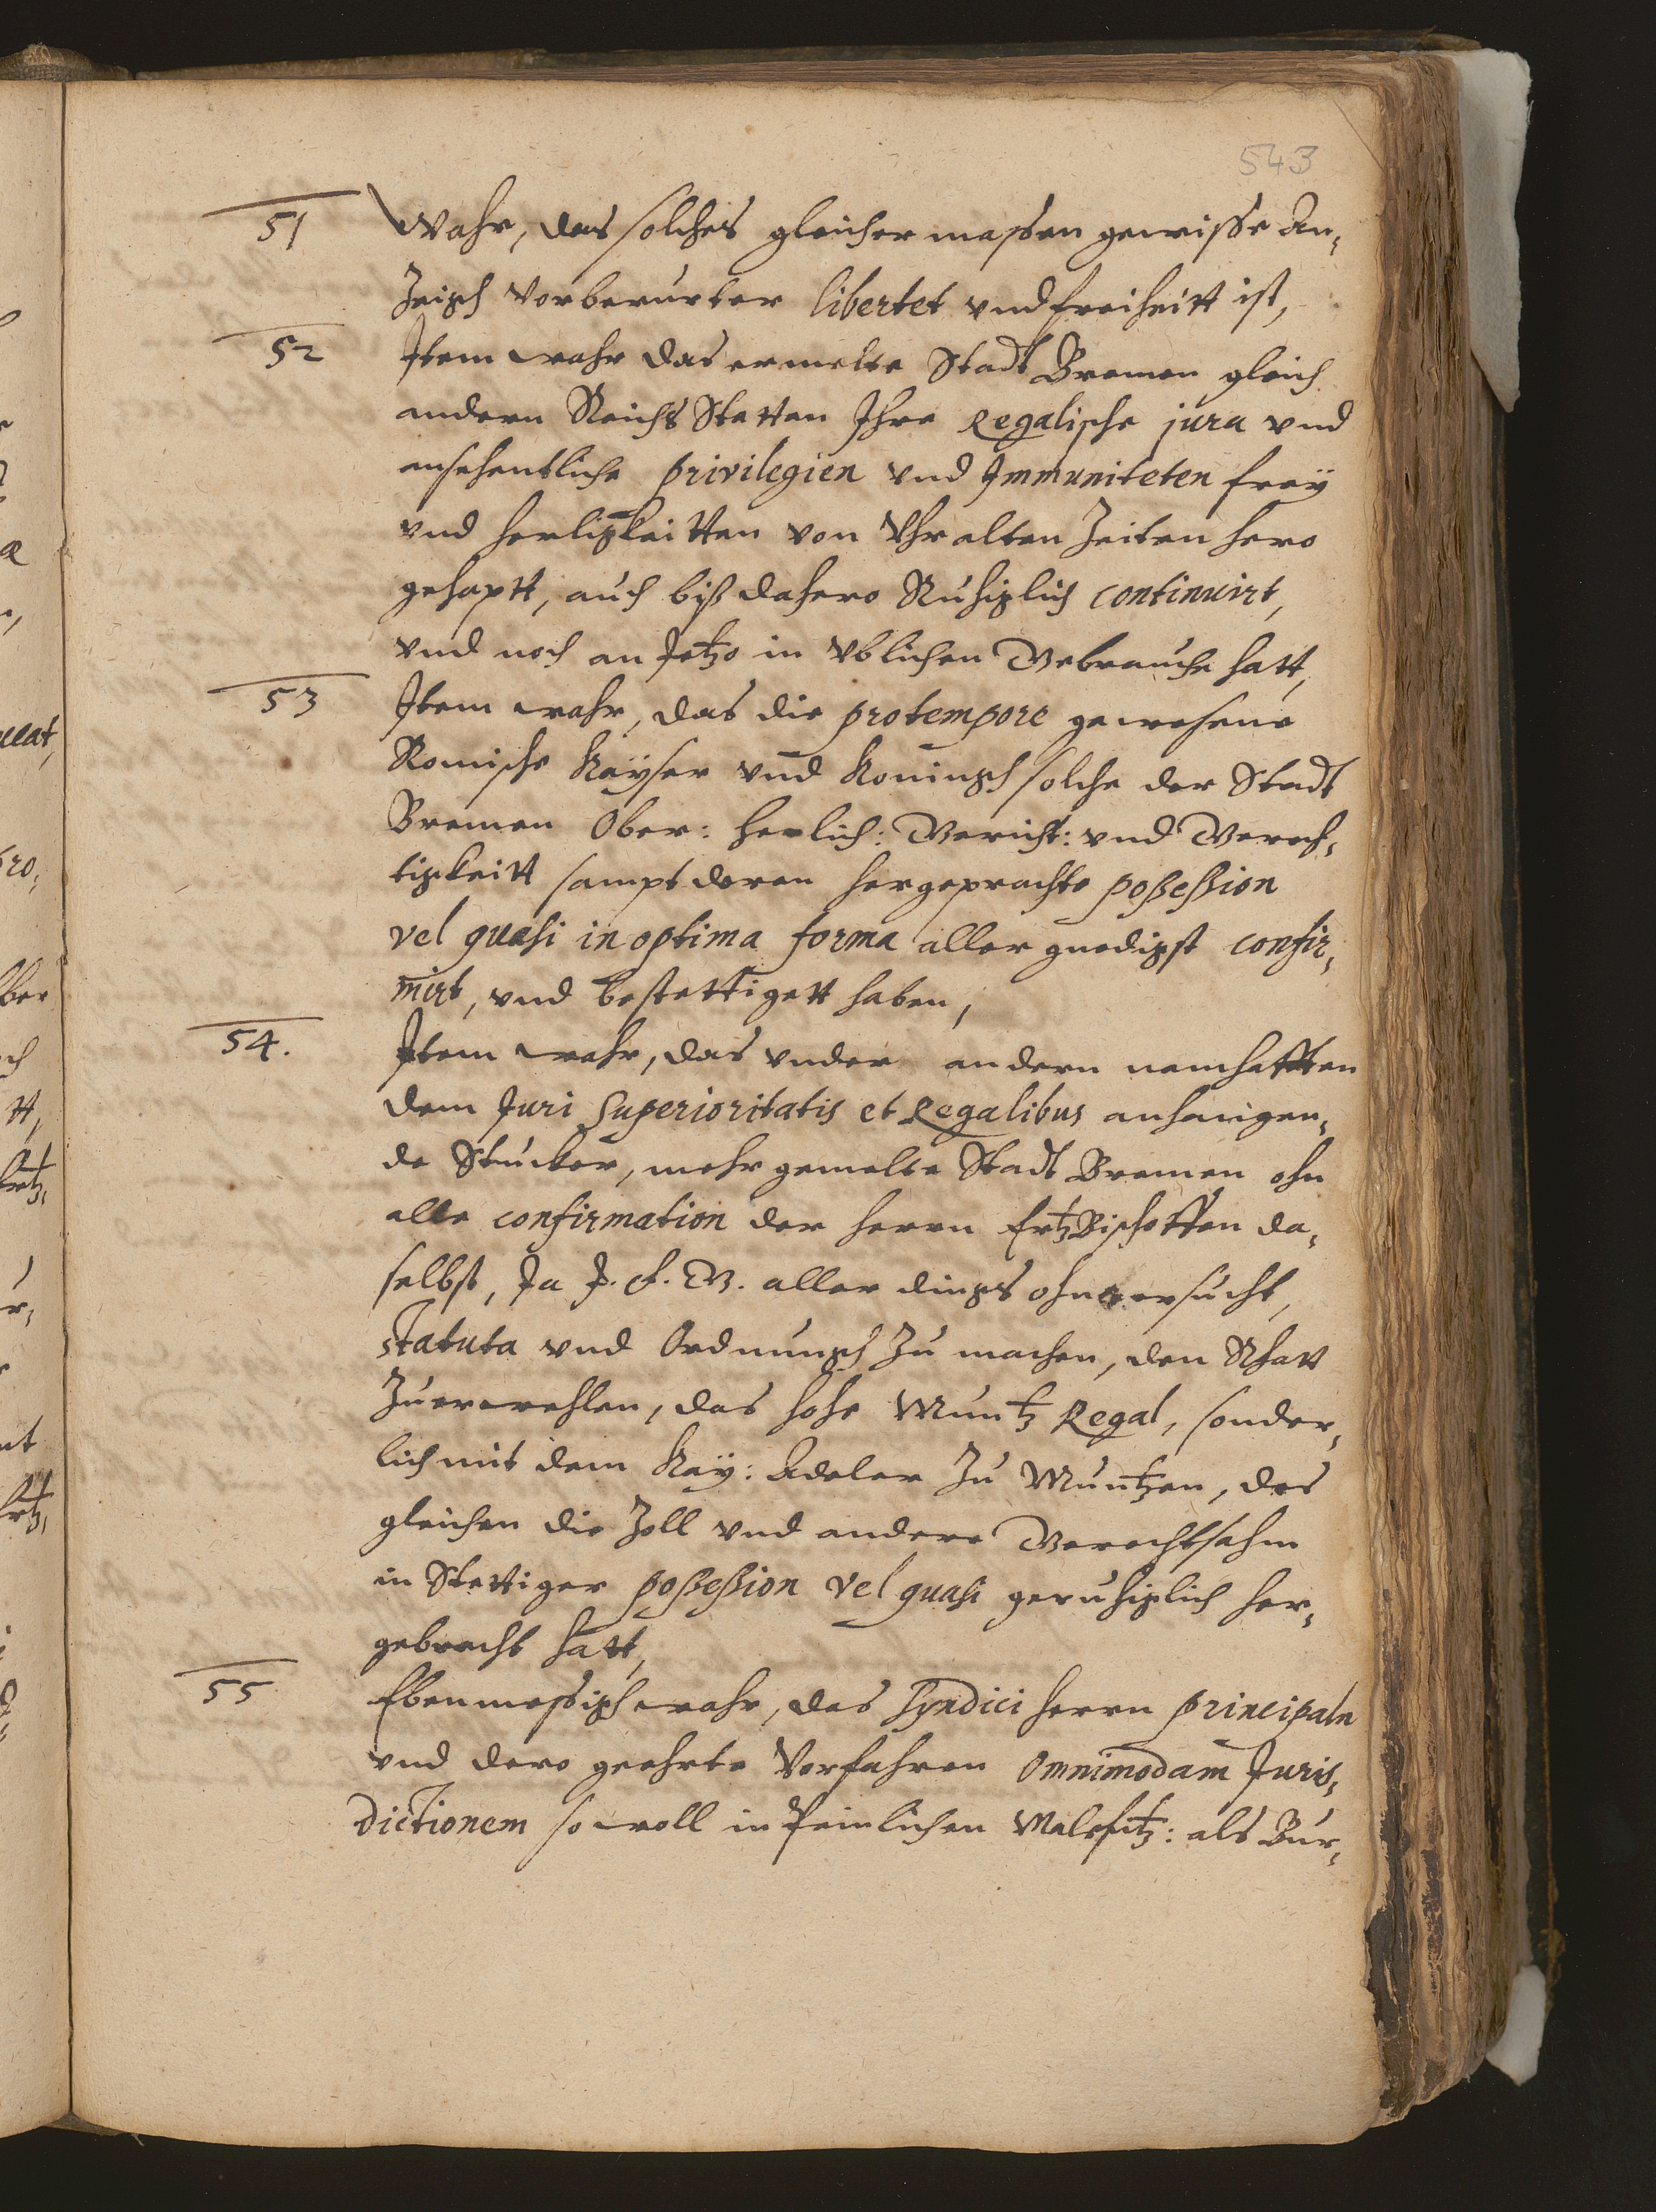 543
51 Wahr, das solches gleicher massen gewisse An-
Zeigh vorberurter libertet vnd freiheitt ist,
52 Item wahr das ermelte Stadt Bremen gleich
andern Reichs Stetten Ihre Regalische jura vnd
ansehentliche privilegien vnd Immuniteten frey
vnd herligkeitten von Vhralten Zeiten hero
gehaptt, auch biß dahero Ruhiglich continuirt,
vnd noch an Jetzo in vblichen Gebrauche hatt,
53 Item wahr, das die pro tempore gewesene
Romische Kayser vnd Koningh solche der Stadt
Bremen Ober: herlich: Gericht: vnd Gerech-
tigkeitt sampt deren hergeprachte poßeßion
vel quasi in optima forma aller gnedigst confir-
mirt, vnd bestettigett haben,
54. Item wahr, das vnder andern namhafften
dem Juri Superioritatis et Regalibus anhangen-
de Stucker, mehr gemelte Stadt Bremen ohn
alle confirmation der herrn ErtzBischoffen da-
selbst, Ja J. F. G. aller dings ohnersucht,
statuta vnd Ordnungh Zu machen, den Rhatt
Zuerwehlen, das hohe Muntz Regal, sonder-
lich mit dem Kay: Adeler Zu Muntzen, des
gleichen die Zoll vnd andere Gerechtsahm
in Stettiger poßeßion vel quasi geruhiglich her-
gebracht hatt,
55 Ebenmessigh wahr, das Syndici herrn principaln
vnd dero geehrte Vorfahren Omnimodam Juris-
dictionem so woll in Peinlichen Malefitz: als Bur-